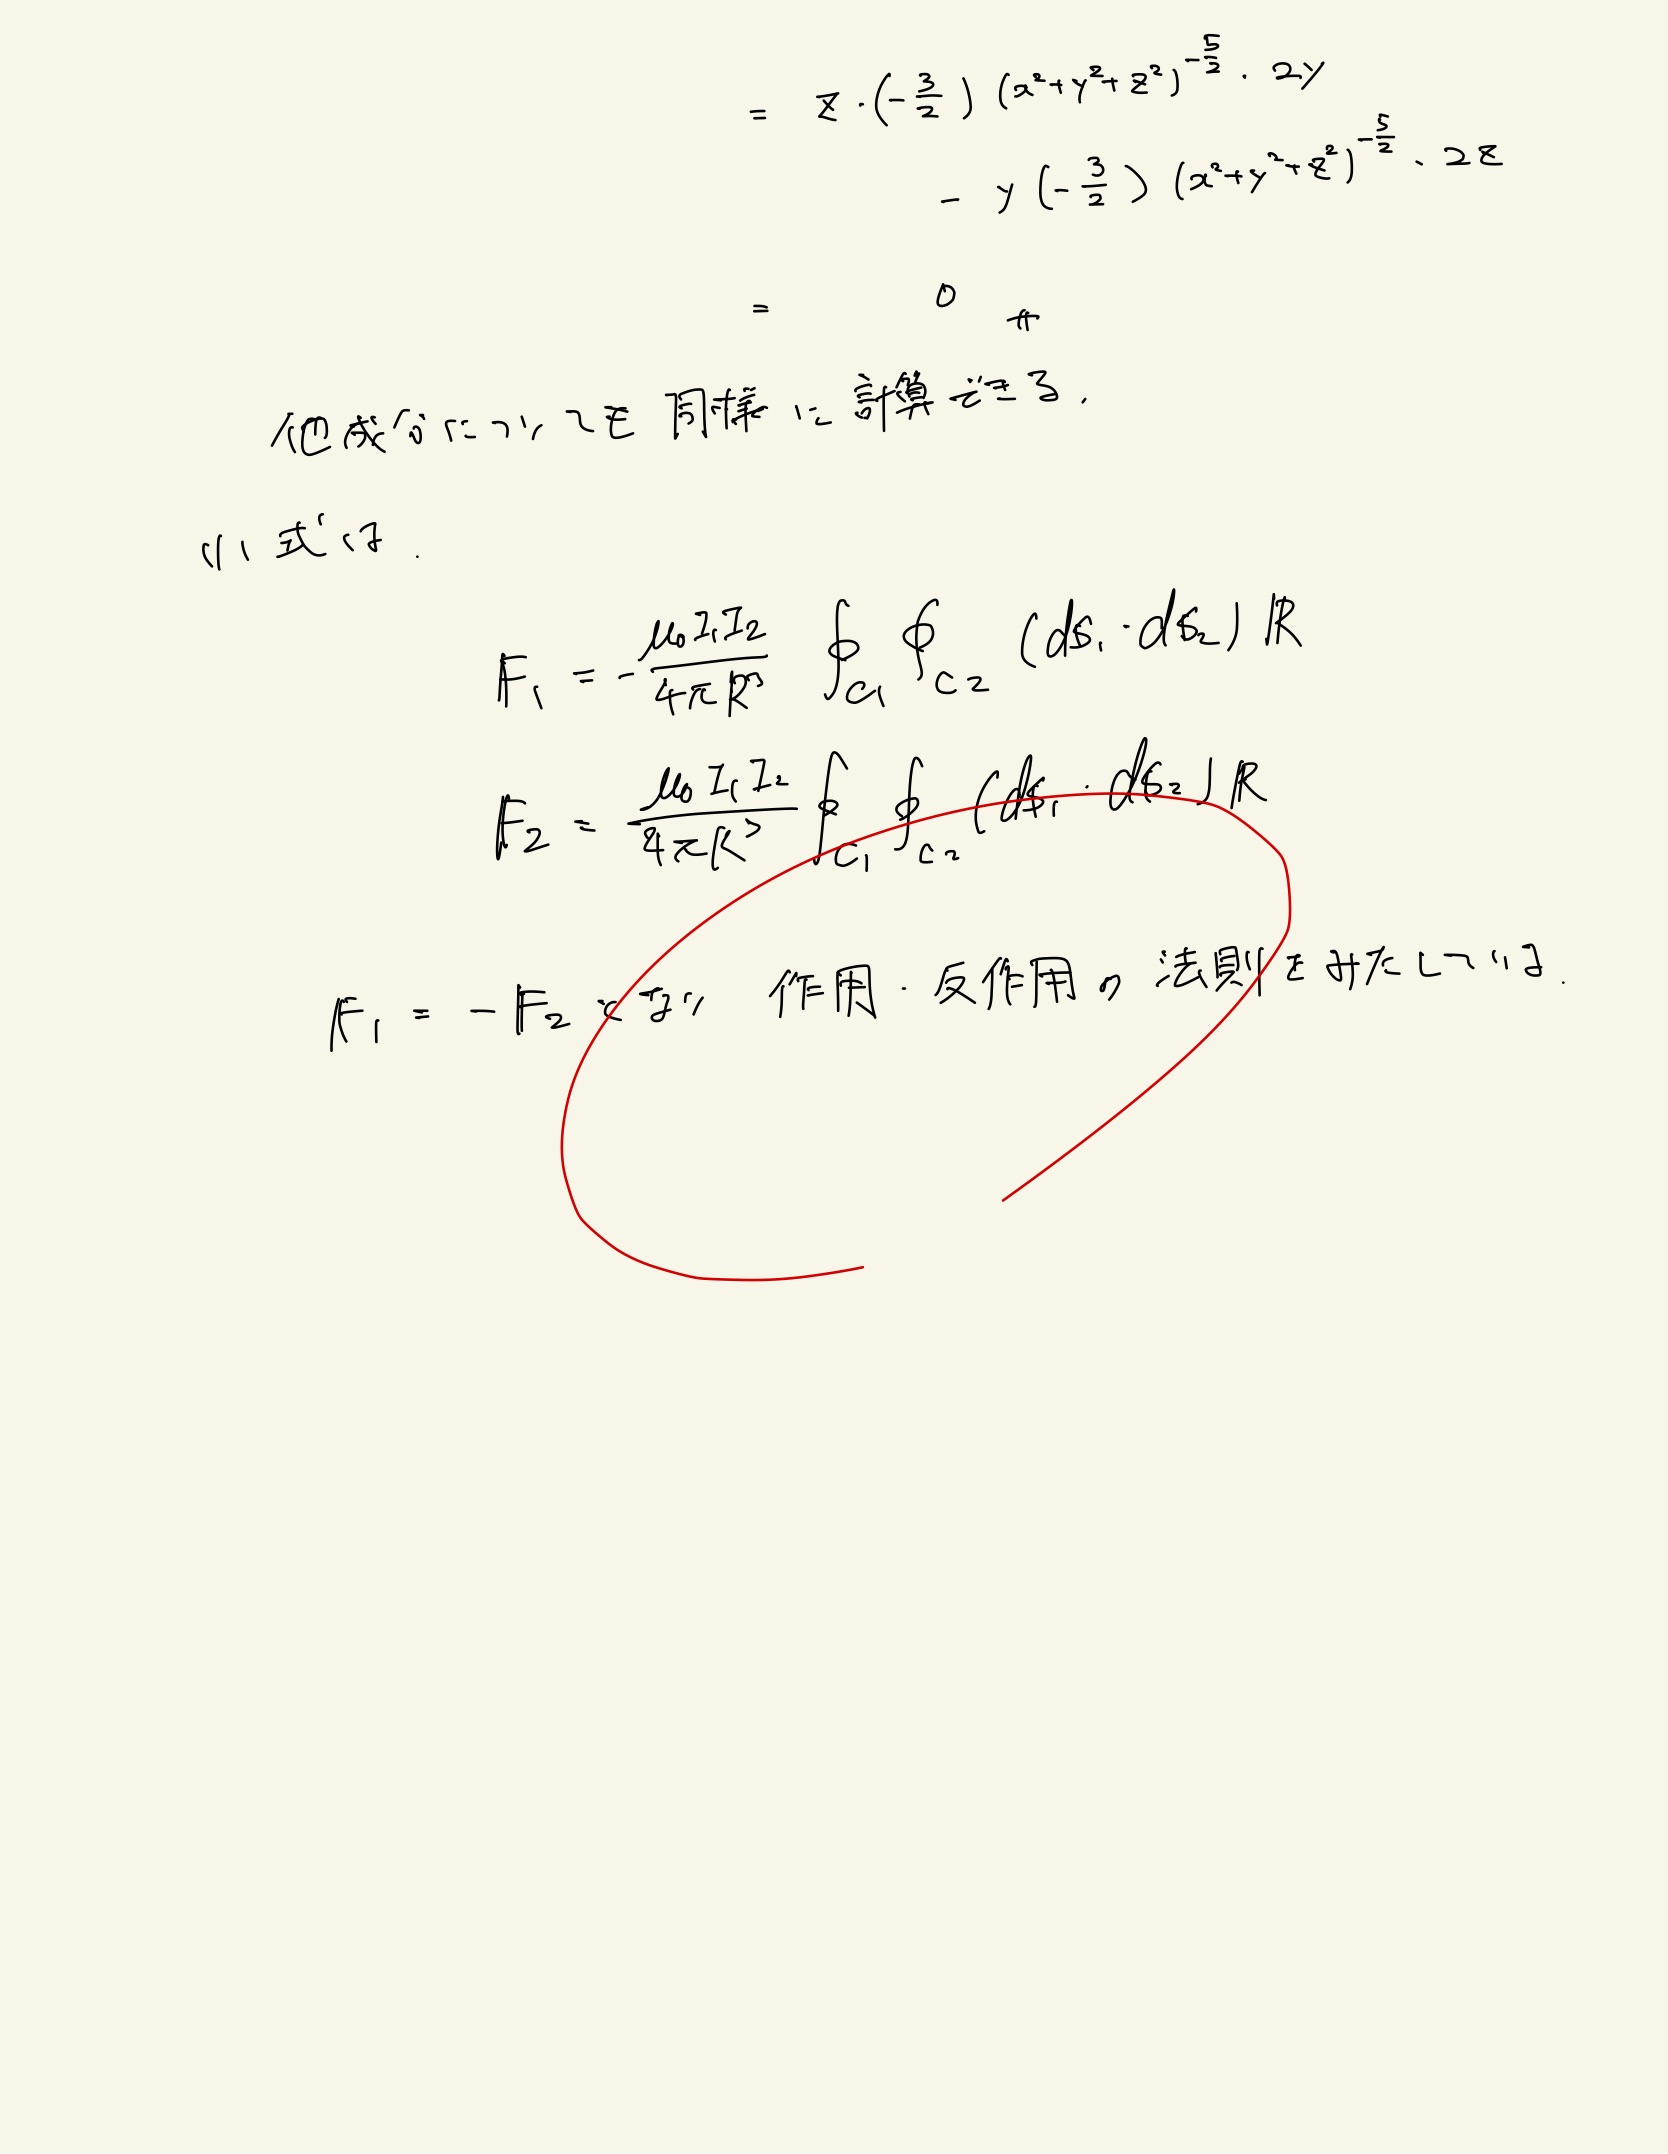 = z・(-3/2) (x²+y²+z²)^{-5/2} ・ 2y
- y (-3/2) (x²+y²+z²)^{-5/2} ・ 2z
= 0
他成分についても 同様に 計算できる.
(1) 式は.
F₁ = - μ₀I₁I₂/4πR³ ∮_{C₁} ∮_{C₂} (ds₁・ds₂) R
F₂ = μ₀I₁I₂/4πR³ ∮_{C₁} ∮_{C₂} (ds₁・ds₂) R
F₁ = - F₂ となり 作用・反作用の 法則をみたしている.